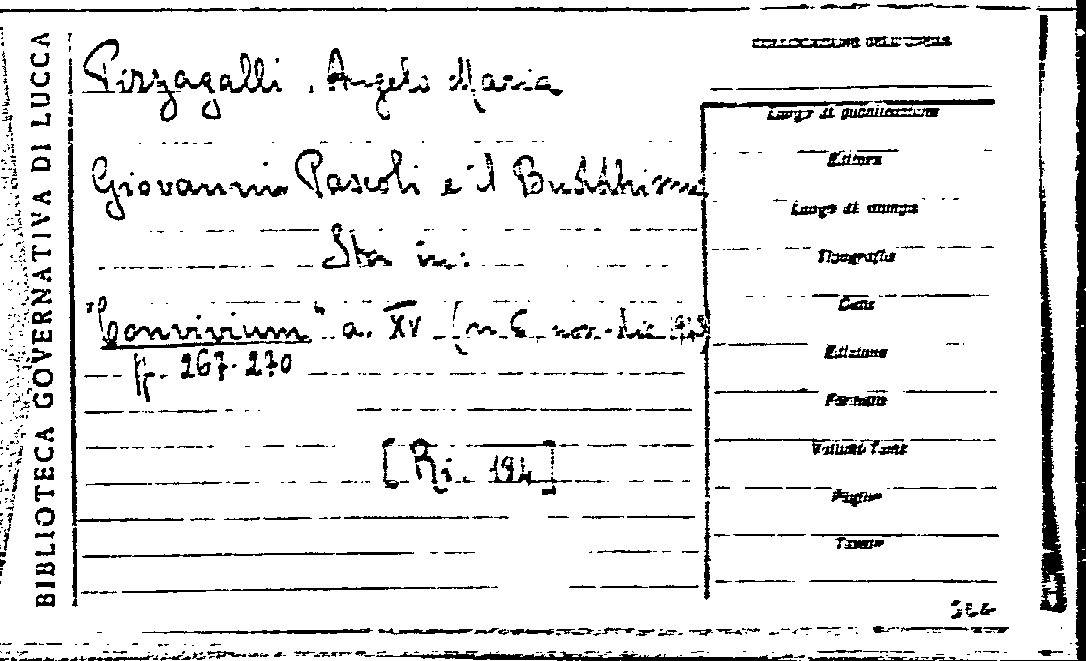 BIBLIOTECA GOVERNATIVA DI LUCCA
Pizzagalli, Angelo Maria
Giovanni Pascoli e il Buddhismo
Sta in:
"Convivium" a. XV (n. 6 nov.-dic.
pp. 267-270
[Ri. 194]
COLLOCAZIONE DELL'OPERA
Luogo di pubblicazione
Editore
Luogo di stampa
Tipografia
Data
Edizione
Formato
Volumi
Pagine
Tavole